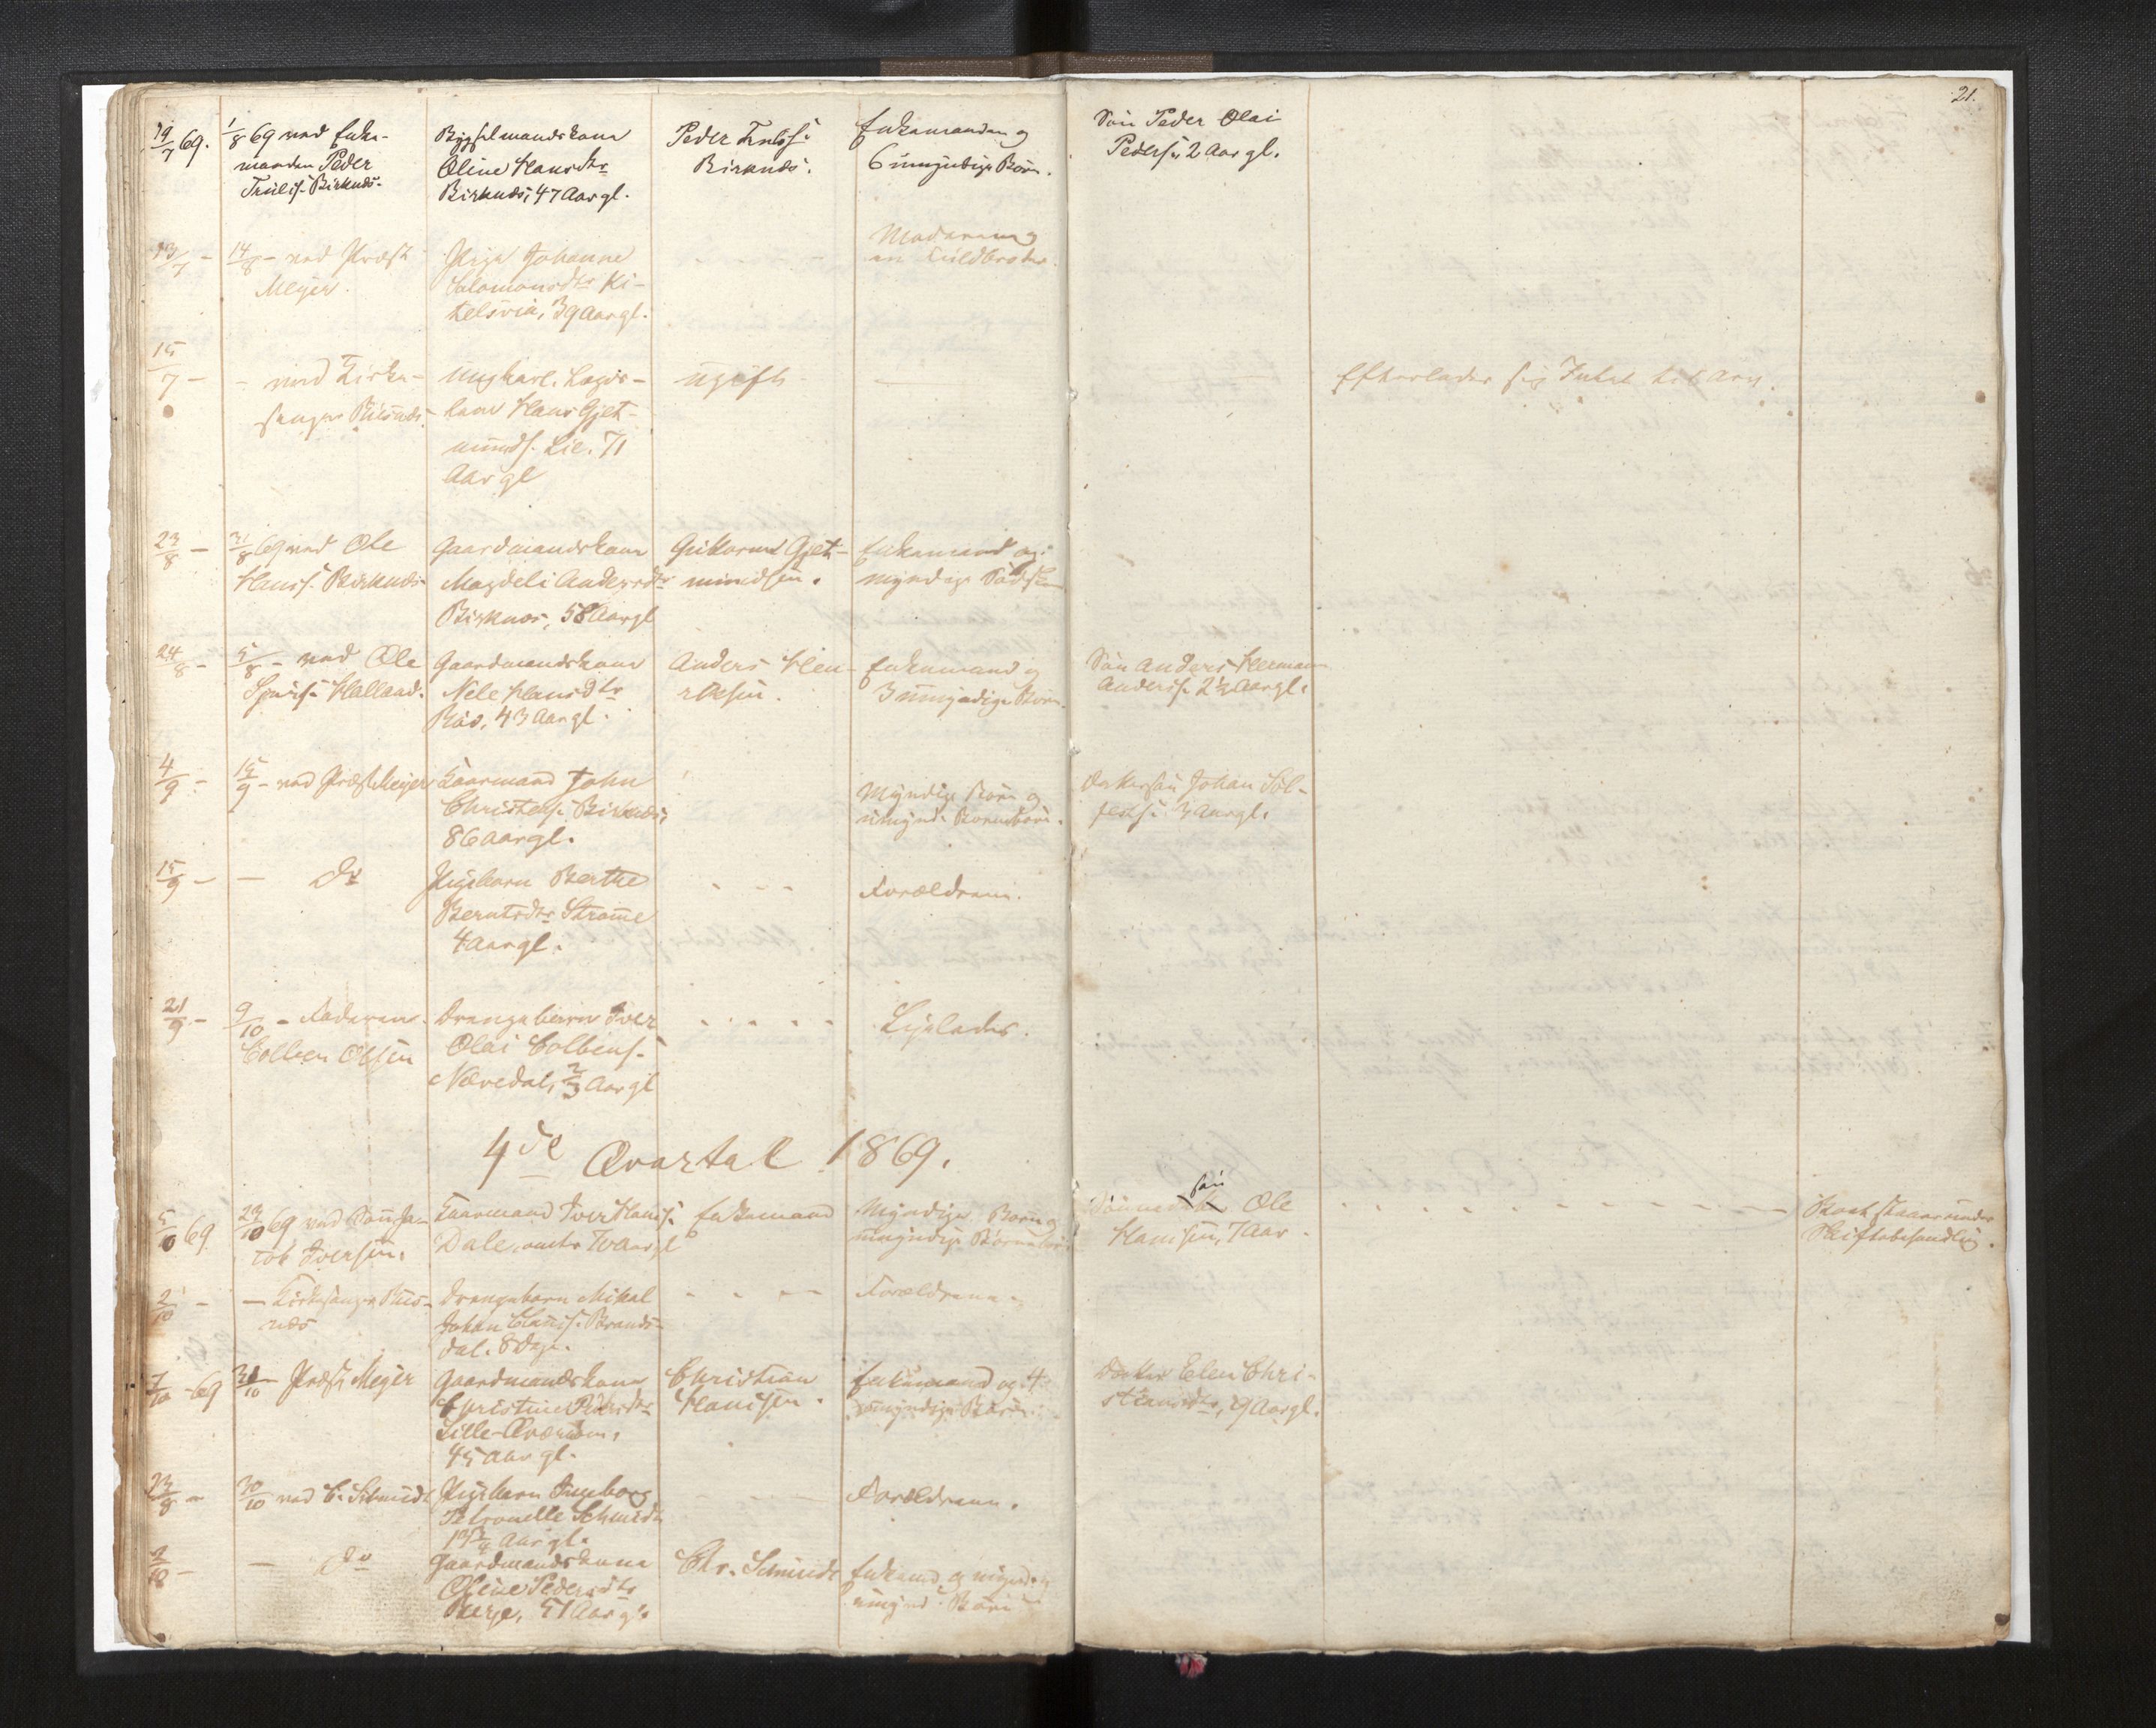 21.
19/7 69.
1/8 69 ved Enke-
manden Peder
Trulss. Birknæs.
Bygselmandskone
Oline Hansdtr
Birknæs, 47 Aar gl.
Peder Trulss.
Birknæs.
Enkemanden og
6 umyndige Børn.
Søn Peder Olai
Peders. 2 Aar gl.
13/7 -
14/8 - ved Præst
Meyer.
Pige Johanne
Salomonsdtr Ki-
telsvig, 39 Aar gl.
Moderen og
en Fuldbroder.
15/7 -
- ved Kirke-
sanger
Ungkarl. Lægds-
lem Hans Gjet-
munds. Lie. 71
Aar gl
ugift
Efterlader sig Intet til Arv.
23/8 -
31/8 69 ved Ole
Hanss. Birknæs
Gaardmandskone
Magdeli Andersdtr
Birknæs, 58 Aar gl
Guttorm Gjet-
mundsen.
Enkemand og
myndige
24/8 -
5/8 - ved Ole
Halland.
Gaardmandskone
Nele Hansdtr
43 Aar gl.
Anders Hen-
riksen.
Enkemand og
3 umyndige Børn.
Søn Anders Herman
Anderss. 2½ Aar gl.
4/9 -
15/9 - ved Præst Meyer
Kaarmand John
Christens. Birknæs,
86 Aar gl.
Myndige Børn og
umynd. Børnebørn.
Dattersøn Johan Sol-
3 Aar gl.
15/9 -
- Do
Pigebarn Berthe
Berntsdtr Strømme
4 Aar gl.
Forældrene.
21/9 -
9/10 - Faderen
Colben Olsen
Drengebarn Iver
Olai Colbens.
Nævedal, 2/3 Aar gl
Ligeledes.
4de Qvartal 1869.
5/10 69
23/10 69 ved Søn Ja-
cob Iversen.
Kaarmand Iver Hanss.
Dale,
Enkemand
Myndige Børn og
umyndige Børnebørn
søn
Ole
Hansen, 7 Aar.
Skiftebehandling.
2/10 -
- Kirkesanger
næs
Drengebarn Mikal
Johan Clauss. Strands-
dal. 8 Dage.
Forældrene.
7/10 - 69
31/10 Præst Meyer
Gaardmandskone
Christine
Lille-Qværnen,
45 Aar gl.
Christian
Hansen.
Enkemand og 4
umyndige Børn.
Datter Elen Chri-
stiansdtr, 9 Aar gl.
23/8 -
30/10 ved C. Schmidt
Pigebarn Ingeborg
Petronelle Schmidt
1¾ Aar gl.
Forældrene.
2/10 -
- Do
Gaardmandskone
Oline Pedersdtr
Berge, 51 Aar gl.
Chr. Schmidt
Enkem. og myndig
umynd. Børn